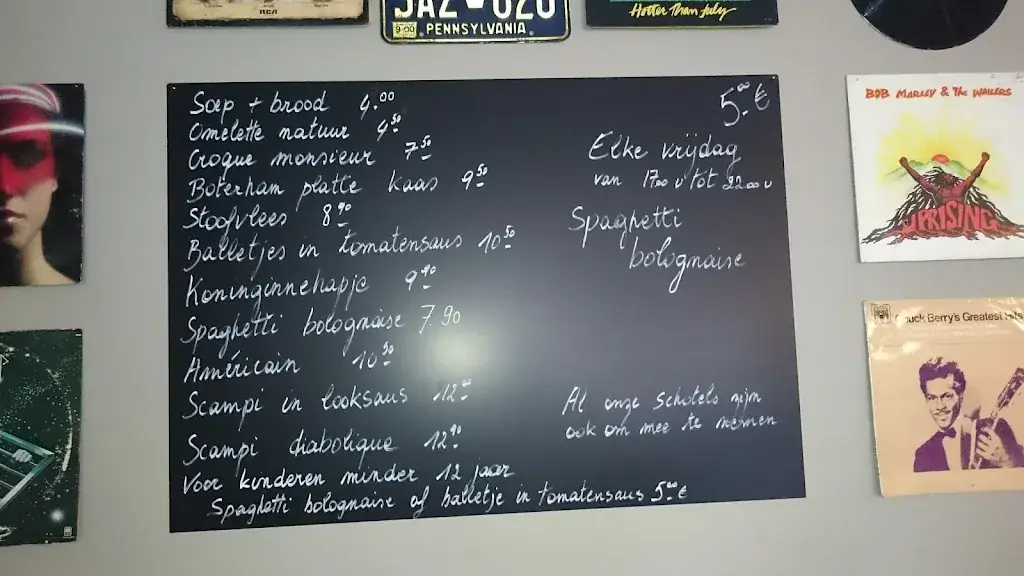 RCA
JAZ 020
9-00
PENNSYLVANIA
Hotter Than July
Soep + brood 4.00
Omelette natuur 4.50
Croque monsieur 7.50
Boterham platte kaas 9.50
Stoofvlees 8.90
Balletjes in tomatensaus 10.50
Koninginnehapje 9.90
Spaghetti bolognaise 7.90
Américain 10.50
Scampi in looksaus 12.00
Scampi diabolique 12.90
Voor kinderen minder 12 jaar
Spaghetti bolognaise of balletje in tomatensaus 5.00 €
5.00 €
Elke vrijdag
van 17.00 u tot 22.00 u
Spaghetti
bolognaise
Al onze schotels zijn
ook om mee te nemen
BOB MARLEY & THE WAILERS
UPRISING
Chuck Berry's Greatest Hits